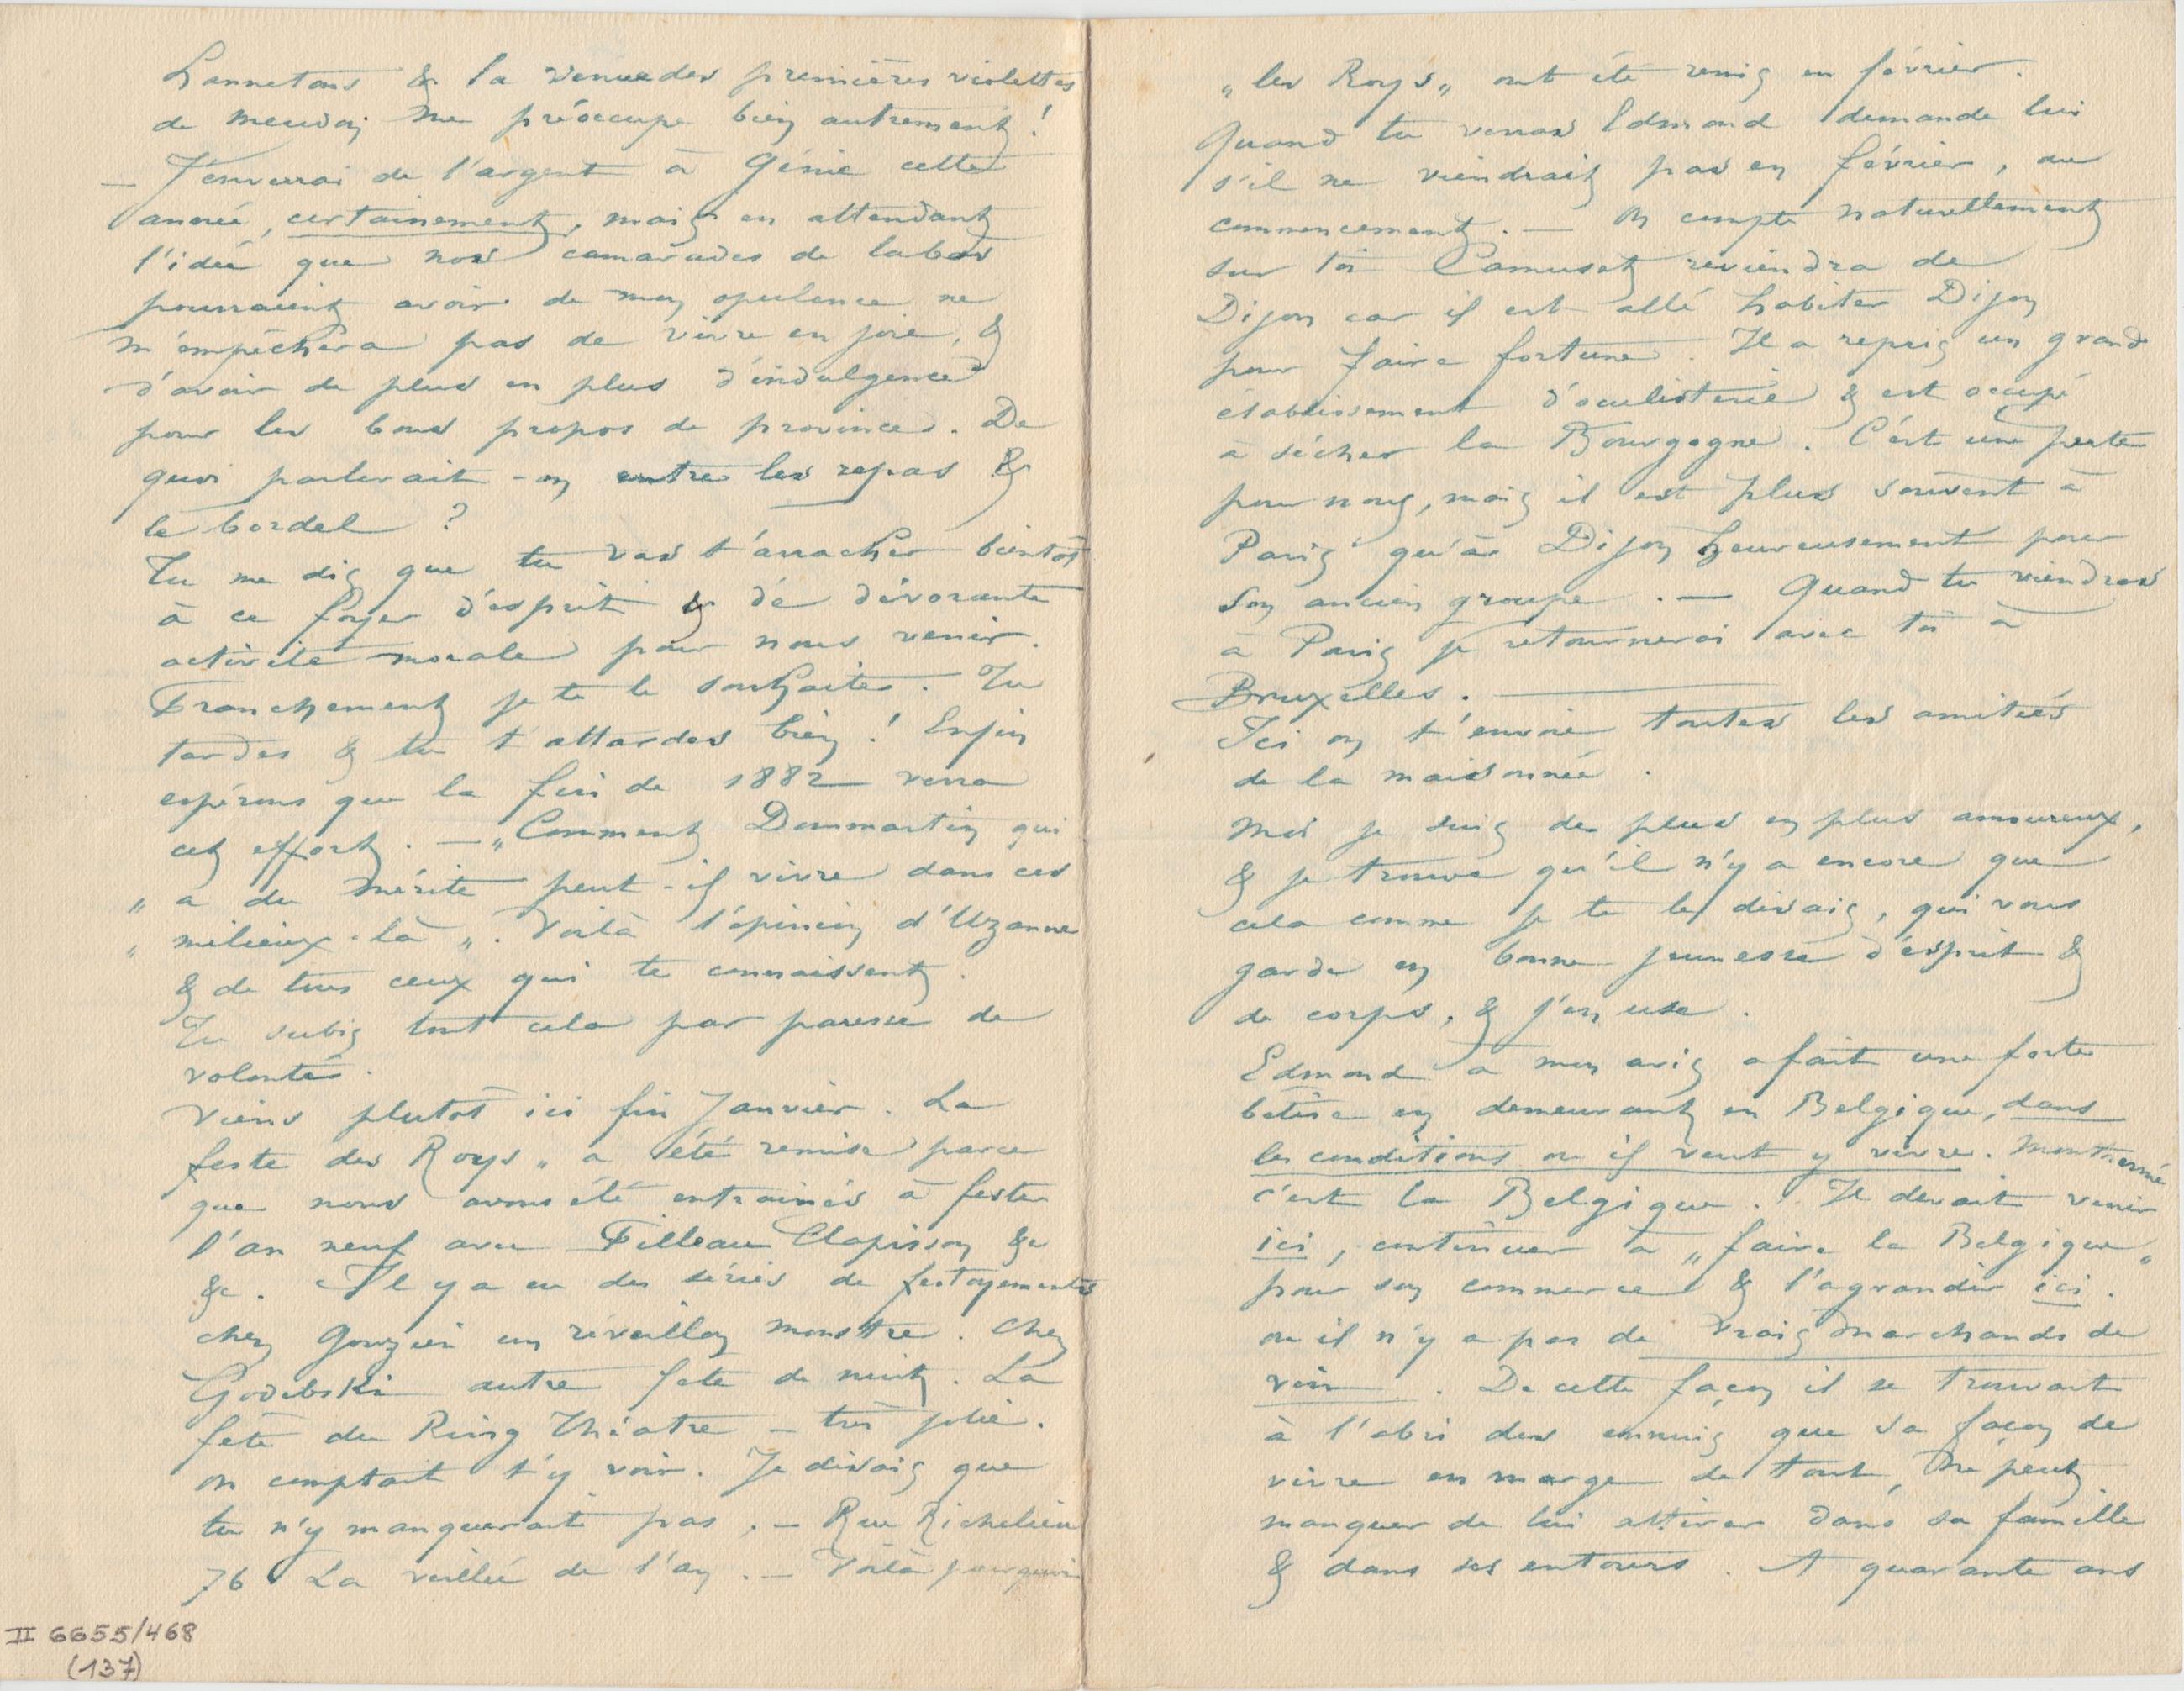 hannetons & la venue des premières violettes
de Meudon me préoccupe bien autrement !
— J'enverrai de l'argent à Génie cette
année, certainement, mais en attendant
l'idée que nos camarades de labas
pourraient avoir de mon opulence ne
m'empêchera pas de vivre en joie, &
d'avoir de plus en plus d'indulgence
pour les bons propos de province. De
quoi parlerait-on entre les repas &
le bordel ?
Tu me dis que tu vas t'arracher bientôt
à ce foyer d'esprit & de dévorante
activité morale pour nous venir.
Franchement je te le souhaite. Tu
tardes & tu t'attardes bien ! Enfin
espérons que la fin de 1882 verra
cet effort. — „Comment Dommartin qui
„ a du mérite peut-il vivre dans ces
„ milieux-là „. Voilà l'opinion d'Uzanne
& de tous ceux qui te connaissent.
Tu subis tout cela par paresse de
volonté.
Viens plutôt ici fin Janvier. La
feste des Roys „ a été remise parce
que nous avons été entrainés à fester
l'an neuf avec Filleau Clapisson &c
&c. Il y a eu des séries de festoyements
chez Gouzien un réveillon monstre. Chez
Godebski autre fete de nuit. La
fête du Ring Théatre — très jolie.
on comptait t'y voir. Je disais que
tu n'y manquerait pas. — Rue Richelieu
76 La veillée de l'an. — Voilà pourquoi
II 6655/468
(137)
„les Roys„ ont été remis en février.
Quand tu verras Edmond demande lui
s'il ne viendrait pas en février, au
commencement. — On compte naturellement
sur toi Camuset reviendra de
Dijon car il est allé habiter Dijon
pour faire fortune. Il a repris un grand
établissement d'oculisterie & est occupé
à sécher la Bourgogne. C'est une perte
pour nous, mais il est plus souvent à
Paris qu'à Dijon heureusement pour
son ancien groupe. — Quand tu viendras
à Paris je retournerai avec toi à
Bruxelles. —
Ici on t'envoie toutes les amitiés
de la maisonnée.
Moi je suis de plus en plus amoureux,
& je trouve qu'il n'y a encore que
cela comme je te le disais, qui vous
garde en bonne jeunesse d'esprit &
de corps, & j'en use.
Edmond à mon avis a fait une forte
bêtise en demeurant en Belgique, dans
les conditions ou il veut y vivre. Monthermé
c'est la Belgique. Il devait venir
ici, continuer à „faire la Belgique„
pour son commerce & l'agrandir ici.
ou il n'y a pas de vrais marchands de
vin. De cette façon il se trouvait
à l'abri des ennuis que sa façon de
vivre en marge de tout, ne peut
manquer de lui attirer dans sa famille
& dans ses entours. A quarante ans